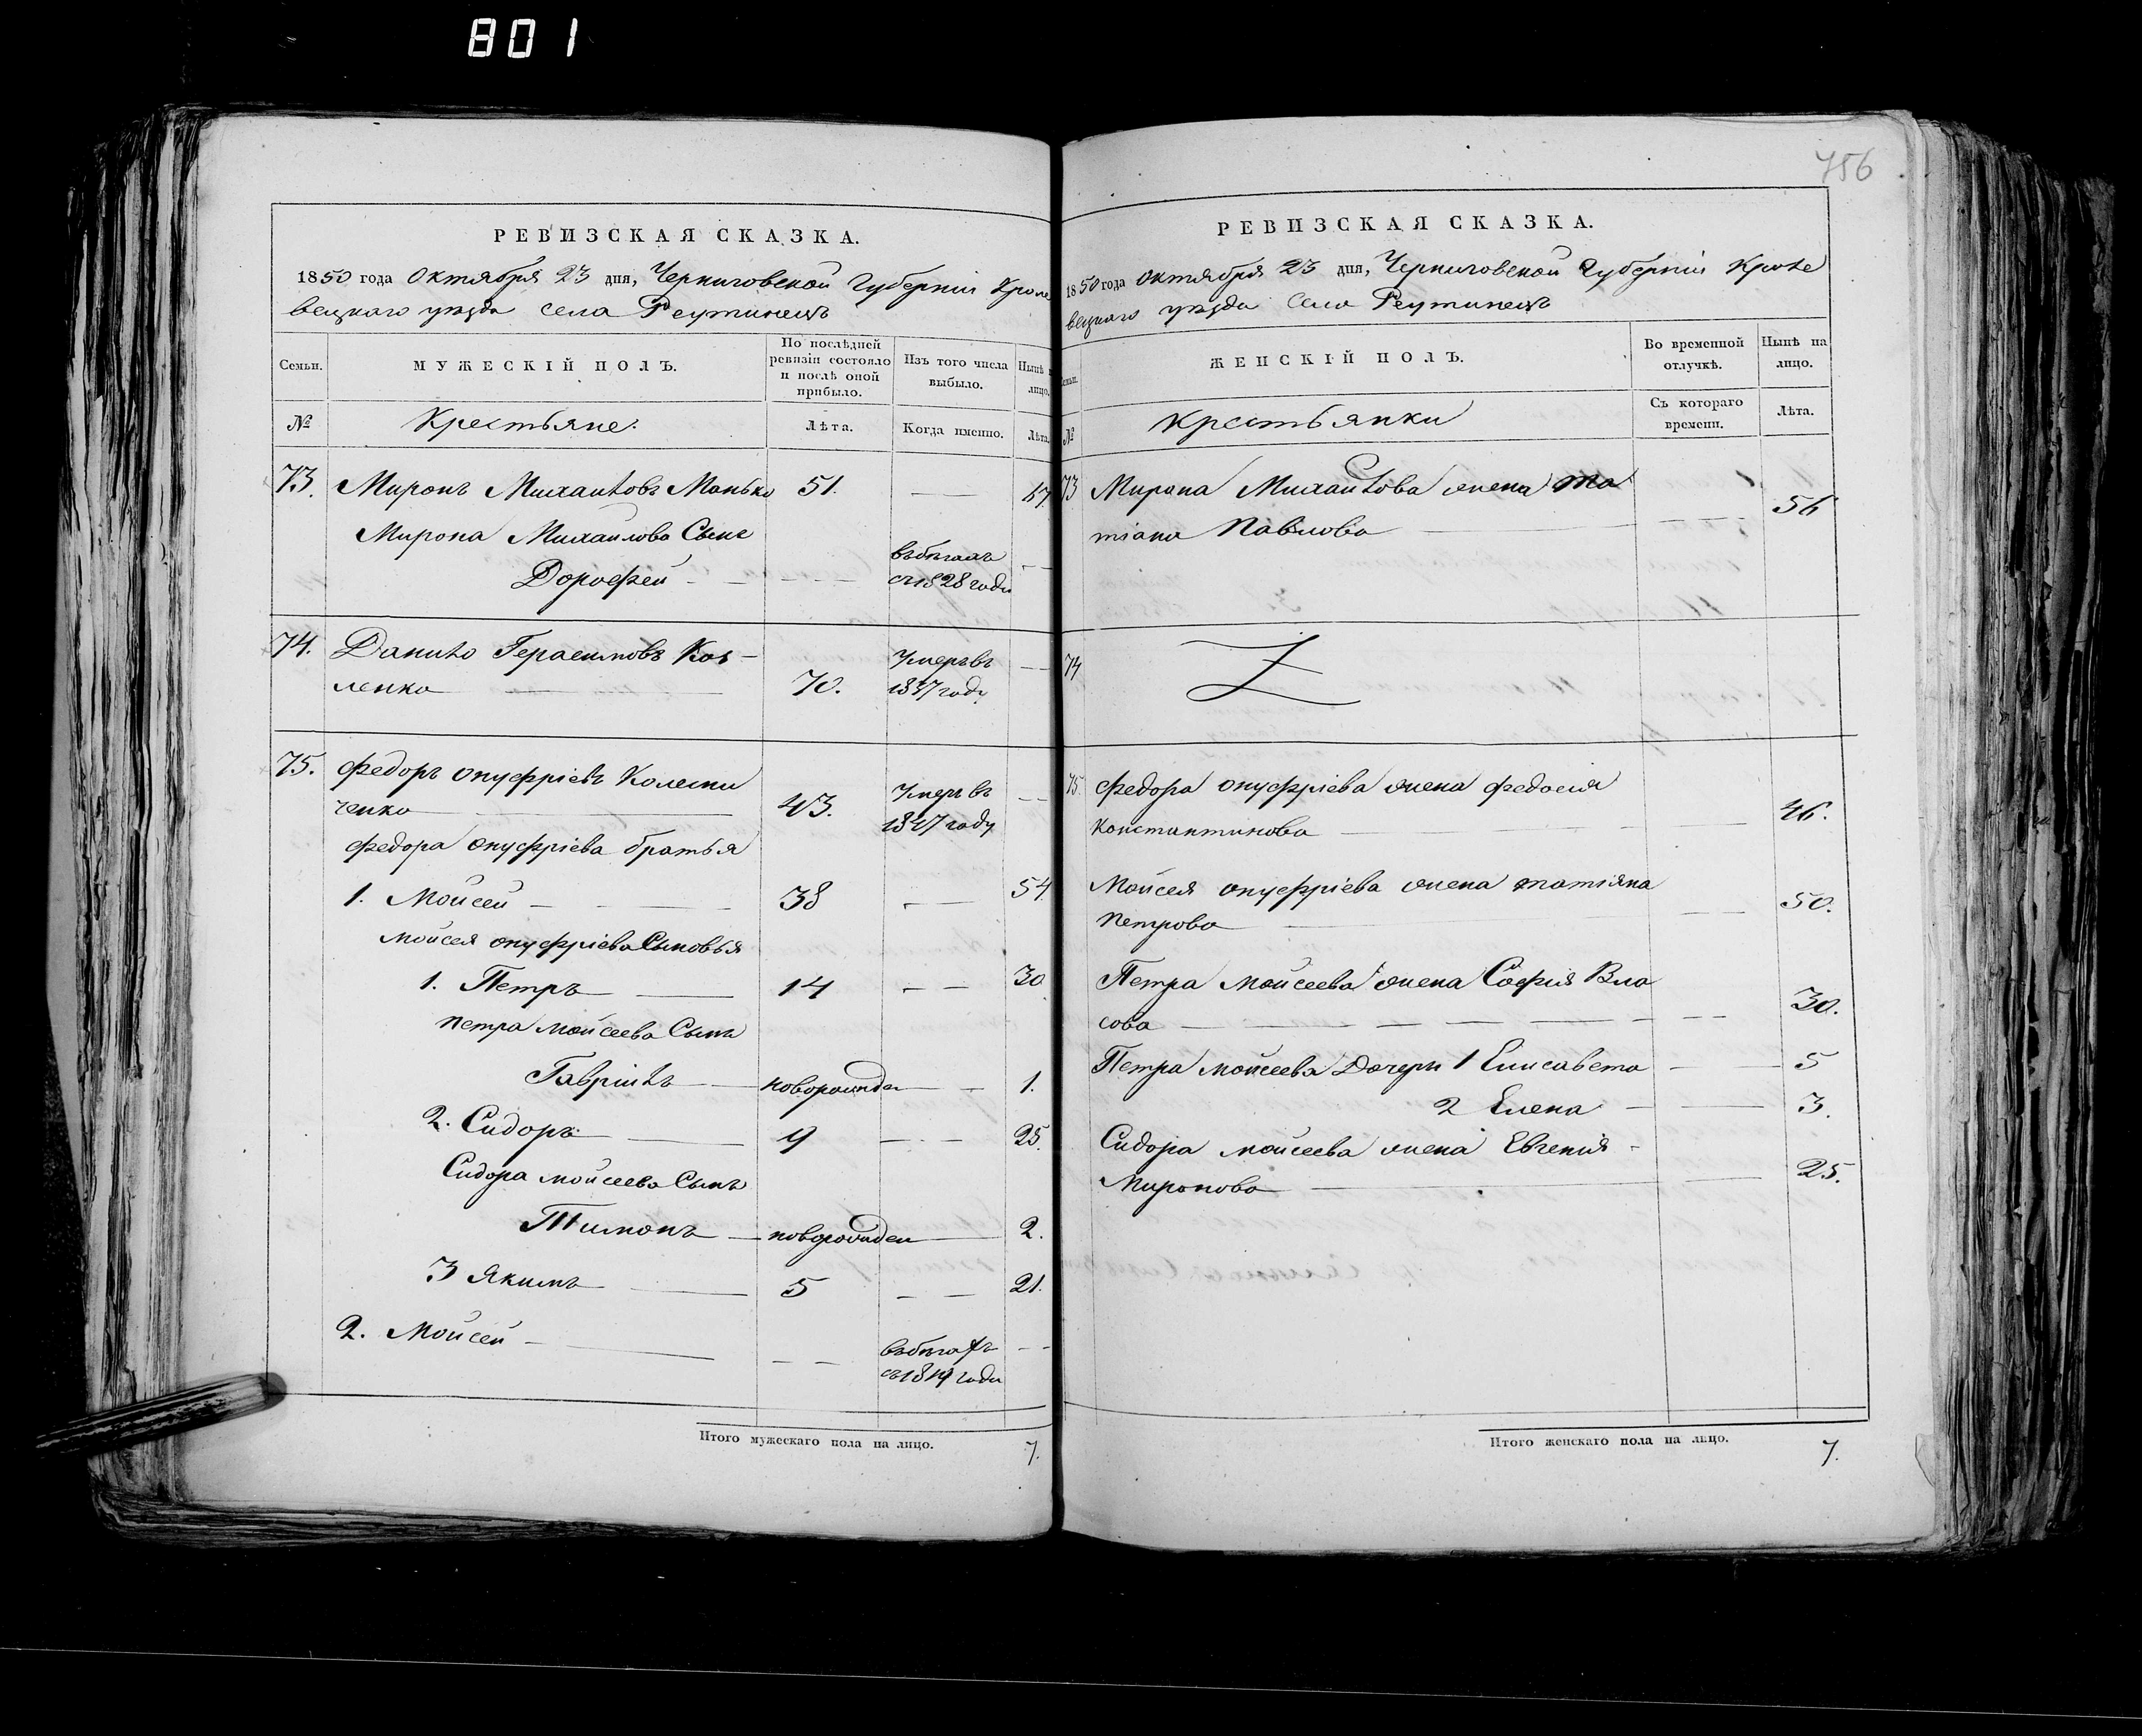 801
756
РЕВИЗСКАЯ СКАЗКА.
1850 года Октября 23 дня, Черниговской Губерніи Кроле
вецкаго уѣзда села Реутинецъ
Семьи.
МУЖЕСКІЙ ПОЛЪ.
По послѣдней ревизіи состояло и послѣ оной прибыло.
Изъ того числа выбыло.
Нынѣ н лицо.
№
Крестьяне.
Лѣта.
Когда именно.
Лѣта.
73. Миронъ Михайловъ Манько 51. — 67
Мирона Михаилова Сынъ
Дорофей - — въбѣгахъ
съ1828 года
74. Данило Герасимовъ Коз-
ленко 70. Умеръвъ
1847 году
75. Федоръ Онуфріевъ Колесни
ченко 43. Умеръ въ
1847 году
Федора Онуфріева братья
1. Мойсей 38 — 54
Мойсея онуфріева Сыновья
1. Петръ 14 — 30
Петра Мойсеева Сынъ
Гавріилъ новорожден 1.
2. Сидоръ 9 — 25.
Сидора мойсеева Сынъ
Тимонъ новорожден 2.
3 Якимъ 5 — 21.
2. Мойсей — въбѣгахъ
съ1819 года
Итого мужескаго пола на лицо. 7.
РЕВИЗСКАЯ СКАЗКА.
1850 года Октября 23 дня, Черниговской Губерніи Кроле
вецкаго уѣзда села Реутинецъ
Семьи.
ЖЕНСКІЙ ПОЛЪ.
Во временной отлучкѣ.
Нынѣ на лицо.
№
Крестьянки
Съ котораго времени.
Лѣта.
73 Мирона Михайлова жена Та
тіана Павлова — 56
74
75. Федора Онуфріева жена Федосія
Константинова — 46.
Мойсея онуфріева жена Татіяна
Петрова — 50.
Петра Мойсеева жена Софія Вла
сова — 30.
Петра мойсеева Дочери 1 Елисавета — 5
2 Елена — 3.
Сидора мойсеева жена Евгенія -
Миронова — 25.
Итого женскаго пола на лицо. 7.